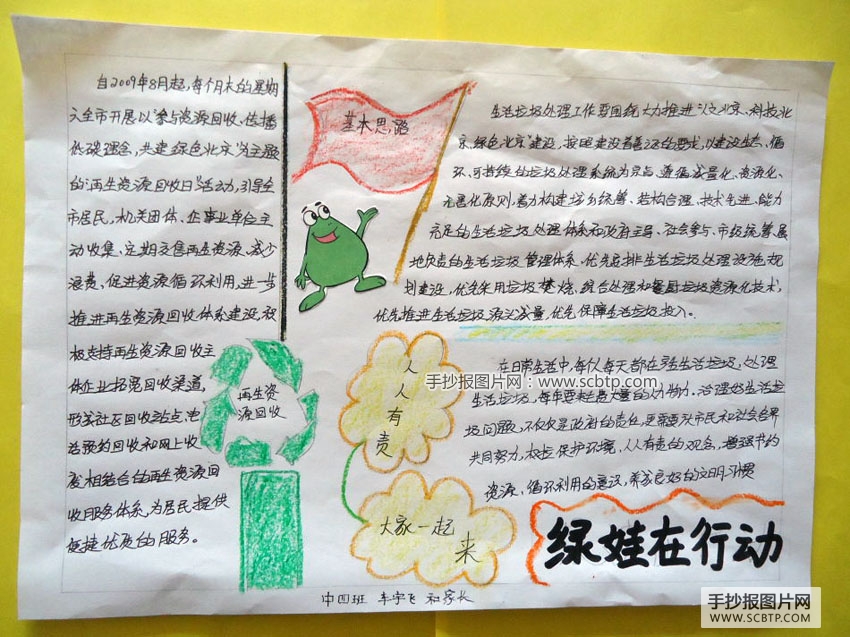 自2009年8月起,每个月末的星期
六全市开展以“参与资源回收、传播
低碳理念,共建绿色北京”为主题
的“再生资源回收日”活动,引导全
市居民,机关团体、企事业单位主
动收集、定期交售再生资源、减少
浪费、促进资源循环利用,进一步
推进再生资源回收体系建设,积
极支持再生资源回收主
体企业拓宽回收渠道,
形成社区回收站点,电
话预约回收和网上收
废相结合的再生资源回
收服务体系,为居民提供
便捷优质的服务。
基本思路
生活垃圾处理工作要围绕大力推进“人文北京、科技北
京、绿色北京”建设,按照建设的要求,以建设生态、循
环、可持续的垃圾处理系统为,遵循减量化、资源化、
无害化原则,着力构建城乡统筹、结构合理、技术先进、能力
充足的生活垃圾处理体系和政府主导、社会参与、市级统筹、属
地负责的生活垃圾管理体系,优先安排生活垃圾处理设施规
划建设,优先采用垃圾焚烧、综合处理和餐厨垃圾资源化技术,
优先推进生活垃圾源头减量,优先保障生活垃圾投入。
再生资
源回收
人人有责
大家一起来
手抄报图片网:www.scbtp.com
在日常生活中,每人每天都在产生生活垃圾,处理
生活垃圾,每年要大量的人力物力。治理好生活垃
圾问题,不仅仅是政府的责任,更需要市民和社会各界
共同努力,保护环境,人人有责的观念,增强节约
资源、循环利用的意识,养成良好的文明习惯
绿娃在行动
中四班 宇飞 和家长
手抄报图片网
WWW.SCBTP.COM